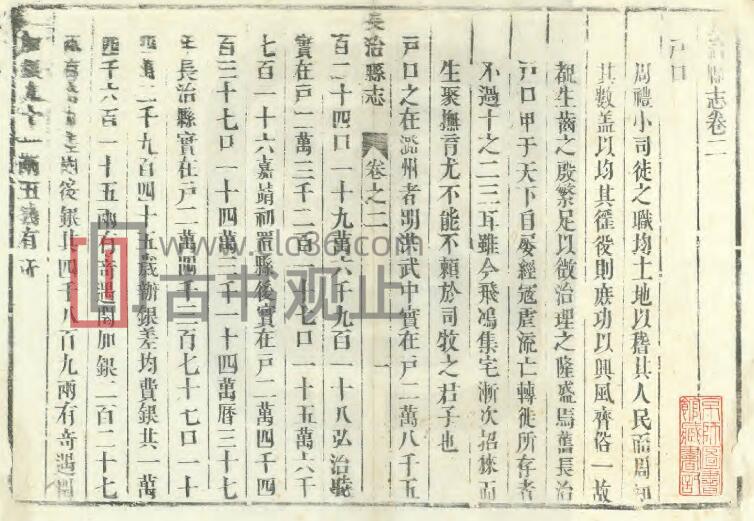 治縣志卷二
戶口
周禮小司徒之職均土地以稽其人民而周知
其數盖以均其徭役則庶功以興風齊俗一故
覩生齒之殷繁足以徵治理之隆盛焉舊長治
戶口甲于天下自屡經寇虐流亡轉徙所存者
不過十之二三耳雖今飛鴻集宅漸次招徠而
生聚撫育尤不能不賴於司牧之君子也
戶口之在潞州者明洪武中實在戶二萬八千五
長治縣志 卷之二 一
百二十四口一十九萬六千九百一十八弘治
實在戶一萬三千二百 十七口一十五萬六千
七百一十六嘉靖初置縣後實在戶一萬四千四
百三十七口一十四萬二千一十四萬曆三十七
年長治縣實在戶一萬四千三百七十七口一十
四萬二千九百四十五歲辦銀差均費銀共 萬
四千六百一十五兩有奇遇閏加銀二百二十七
役銀共四千八百九兩有奇遇閏
十一兩五錢有奇
京師圖書館藏書記
古书观止